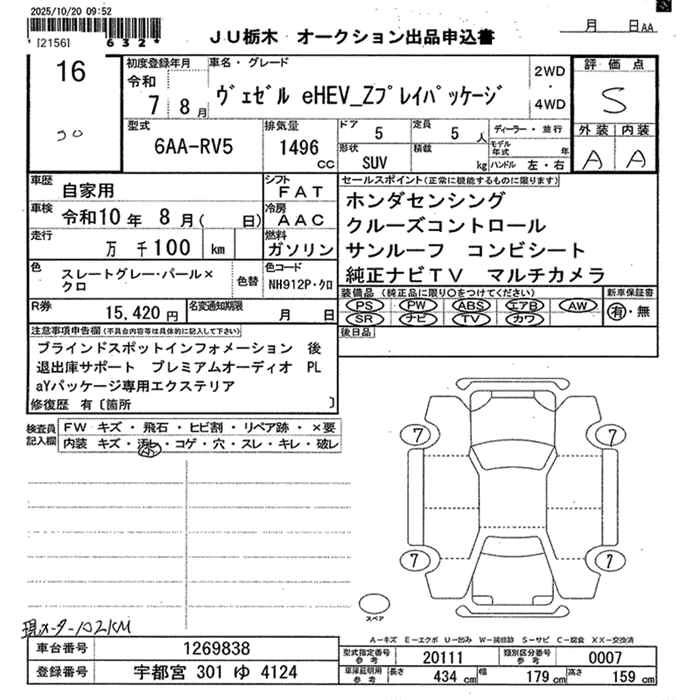 2025/10/20 09:52
*[21561 632*
JU栃木 オークション出品申込書
月 日 AA
16
初度登録年月
令和
7 8 月
車名・グレード
ヴェゼル eHEV_Zプレイパッケージ
2WD
・
4WD
評価点
S
外装 内装
A A
型式
6AA-RV5
排気量
1496
CC
ドア
5
定員
5 人
形状
SUV
積載
kg
ディーラー・並行
モデル年式 年
ハンドル 左・右
車歴
自家用
シフト
FAT
車検
令和10年 8月( 日)
冷房
AAC
走行
万 千100 km
燃料
ガソリン
色
スレートグレー・パール×
クロ
色替
色コード
NH912P・クロ
R券
15,420 円
名変通知期限
月 日
セールスポイント(正常に機能するものに限ります)
ホンダセンシング
クルーズコントロール
サンルーフ コンビシート
純正ナビTV マルチカメラ
装備品 (純正品に限り○をつけてください)
PS PW ABS エアB AW
SR ナビ TV カワ
新車保証書
有・無
後日品
注意事項申告欄(不具合内容等は具体的に記入して下さい)
ブラインドスポットインフォメーション 後
退出庫サポート プレミアムオーディオ PL
aYパッケージ専用エクステリア
修復歴 有〔箇所 〕
検査員記入欄
FW キズ・飛石・ヒビ割・リペア跡・×要
内装 キズ・汚れ・コゲ・穴・スレ・キレ・破レ
7
7
7
7
スペア
現メーター102KM
A-キズ E-エクボ U-凹み W-補修跡 S-サビ C-腐食 XX-交換済
車台番号 1269838
登録番号 宇都宮 301 ゆ 4124
型式指定番号 参考 20111
類別区分番号 参考 0007
車庫証明用 参考
長さ 434 cm
幅 179 cm
高さ 159 cm